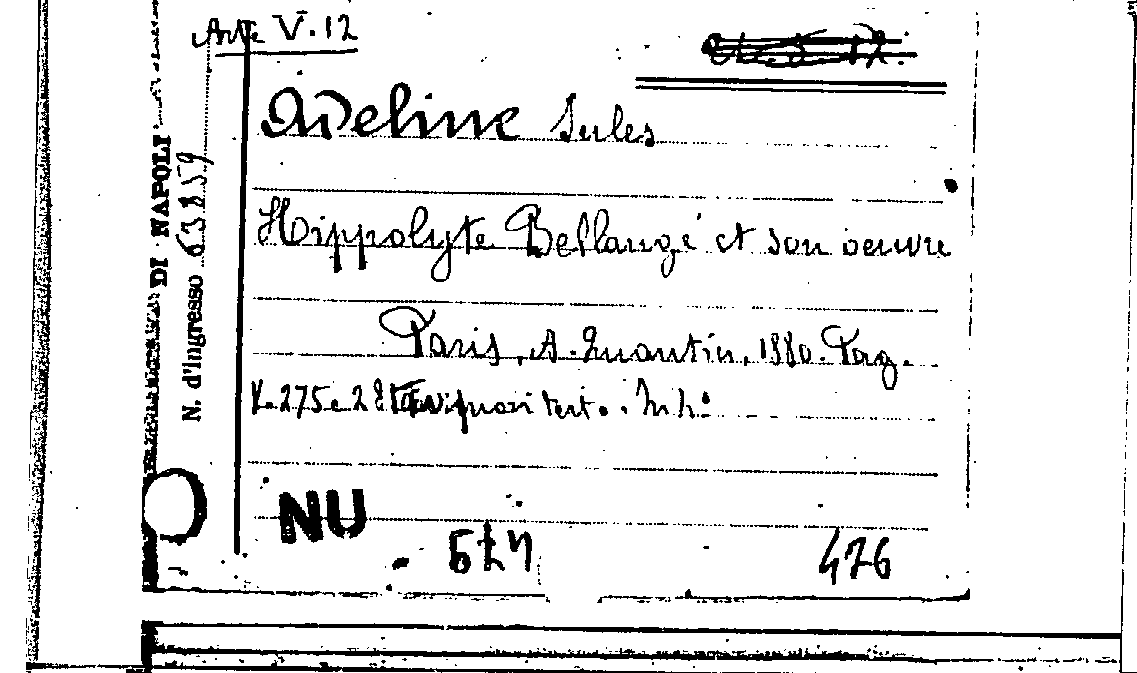 Arte V. 12
Adeline Jules
Hippolyte Bellangé et son oeuvre
Paris, A. Quantin, 1880. Pag.
X-275 e 2 fuori testo. in 4.°
NU
476
DI NAPOLI
N. d'ingresso 63859